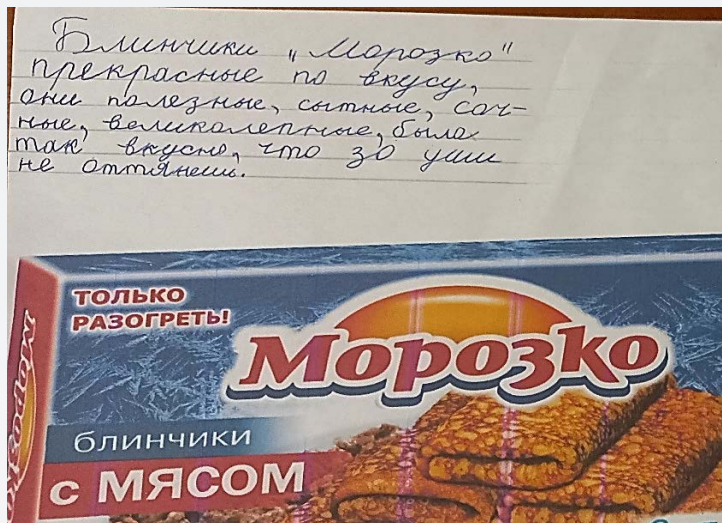 Блинчики „Морозко"
прекрасные по вкусу,
они полезные, сытные, соч-
ные, великолепные, была
так вкусно, что зо уши
не оттянешь.
ТОЛЬКО
РАЗОГРЕТЬ!
Морозко
Морозко
блинчики
с МЯСОМ